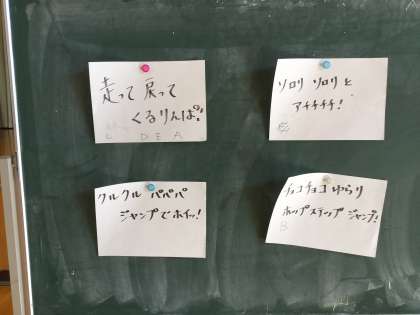 走って戻って
くるりんぱ!
L DEA
ソロリ ソロリと
アチチチ!
クルクル パパパ
ジャンプでホイッ!
チョコチョコ ゆらり
ホップステップ ジャンプ!
B